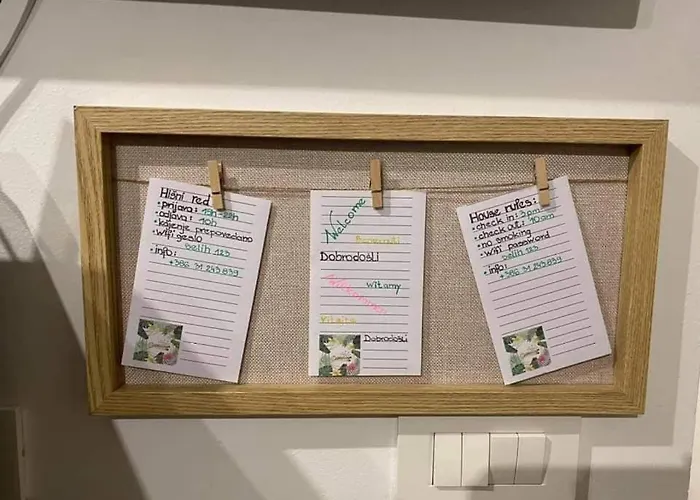 Hišni red
• prijava: 15h - 22h
• odjava: 10h
• kajenje prepovedano
• Wifi geslo
selih 123
• info:
+386 31 243 839
Welcome
Benvenuti
Dobrodošli
Willkommen
witamy
Vitajte
Dobrodošli
House rules:
• check in: 3pm
• check out: 10am
• no smoking
• Wifi password
selih 123
• info:
+386 31 243 839